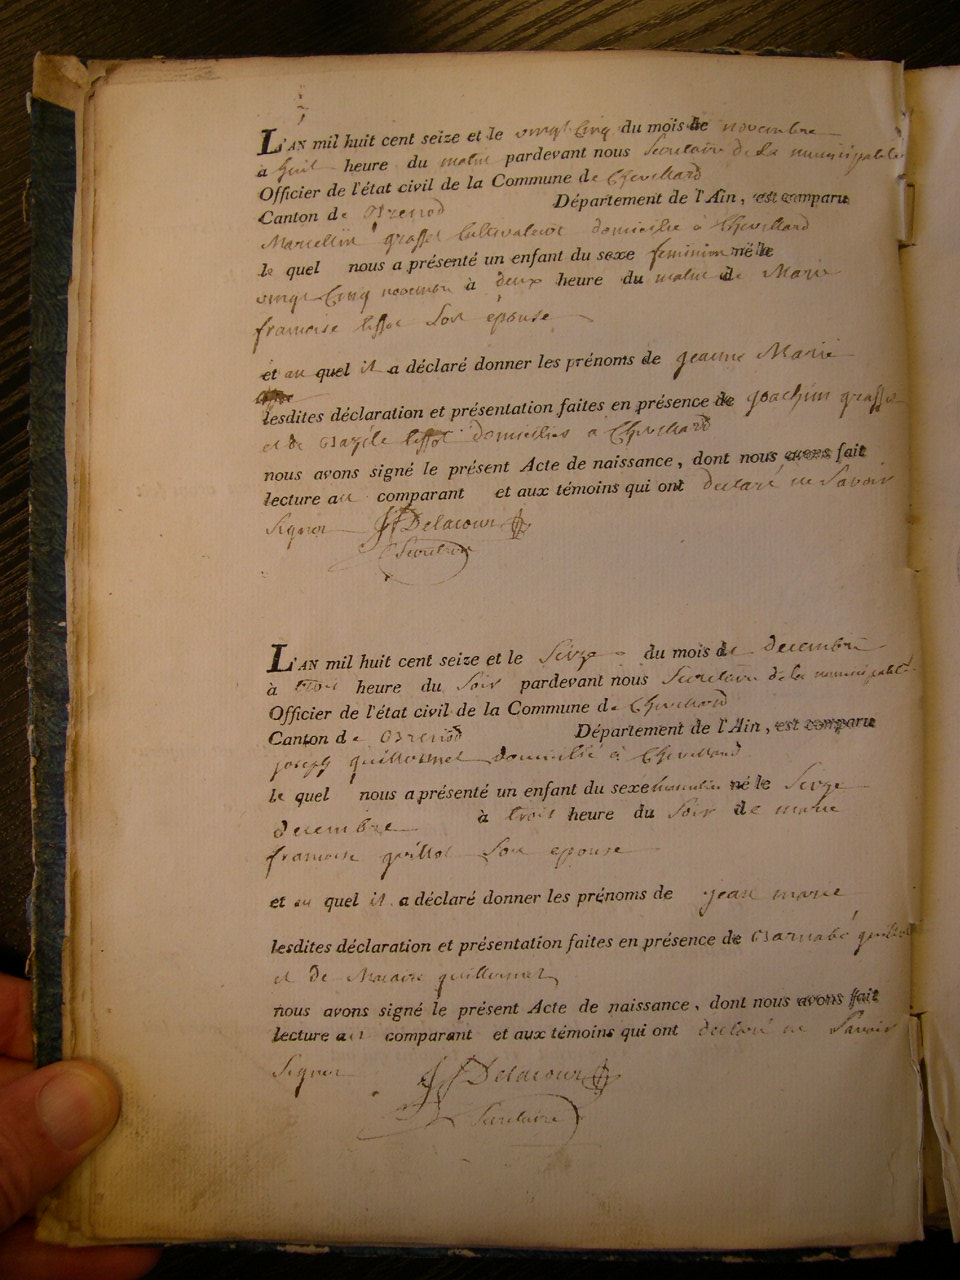 L'AN mil huit cent seize et le vingt cinq du mois de novembre
à huit heure du matin pardevant nous Secretaire de la municipalité
Officier de l'état civil de la Commune de Chevillard
Canton de Brenod Département de l'Ain, est comparu
Marcellin grasset Cultivateur domicilié à Chevillard
le quel nous a présenté un enfant du sexe feminin né le
vingt Cinq novembre à deux heure du matin de Marie
francoise Son épouse
et au quel il a déclaré donner les prénoms de jeanne Marie
lesdites déclaration et présentation faites en présence de joachim grasset
et de Bazile domiciliés a Chevillard
nous avons signé le présent Acte de naissance, dont nous avons fait
lecture au comparant et aux témoins qui ont declaré ne Savoir
Signer Delacour
Secretaire
L'AN mil huit cent seize et le Seize du mois de decembre
à trois heure du Soir pardevant nous Secretaire de la municipalité
Officier de l'état civil de la Commune de Chevillard
Canton de Brenod Département de l'Ain, est comparu
joseph guillermet domicilié à Chevillard
le quel nous a présenté un enfant du sexe masculin né le Seize
decembre à trois heure du Soir de marie
francoise guillot Son epouse
et au quel il a déclaré donner les prénoms de jean marie
lesdites déclaration et présentation faites en présence de Barnabé
et de guillermet
nous avons signé le présent Acte de naissance, dont nous avons fait
lecture au comparant et aux témoins qui ont declaré ne Savoir
Signer Delacour
Secretaire